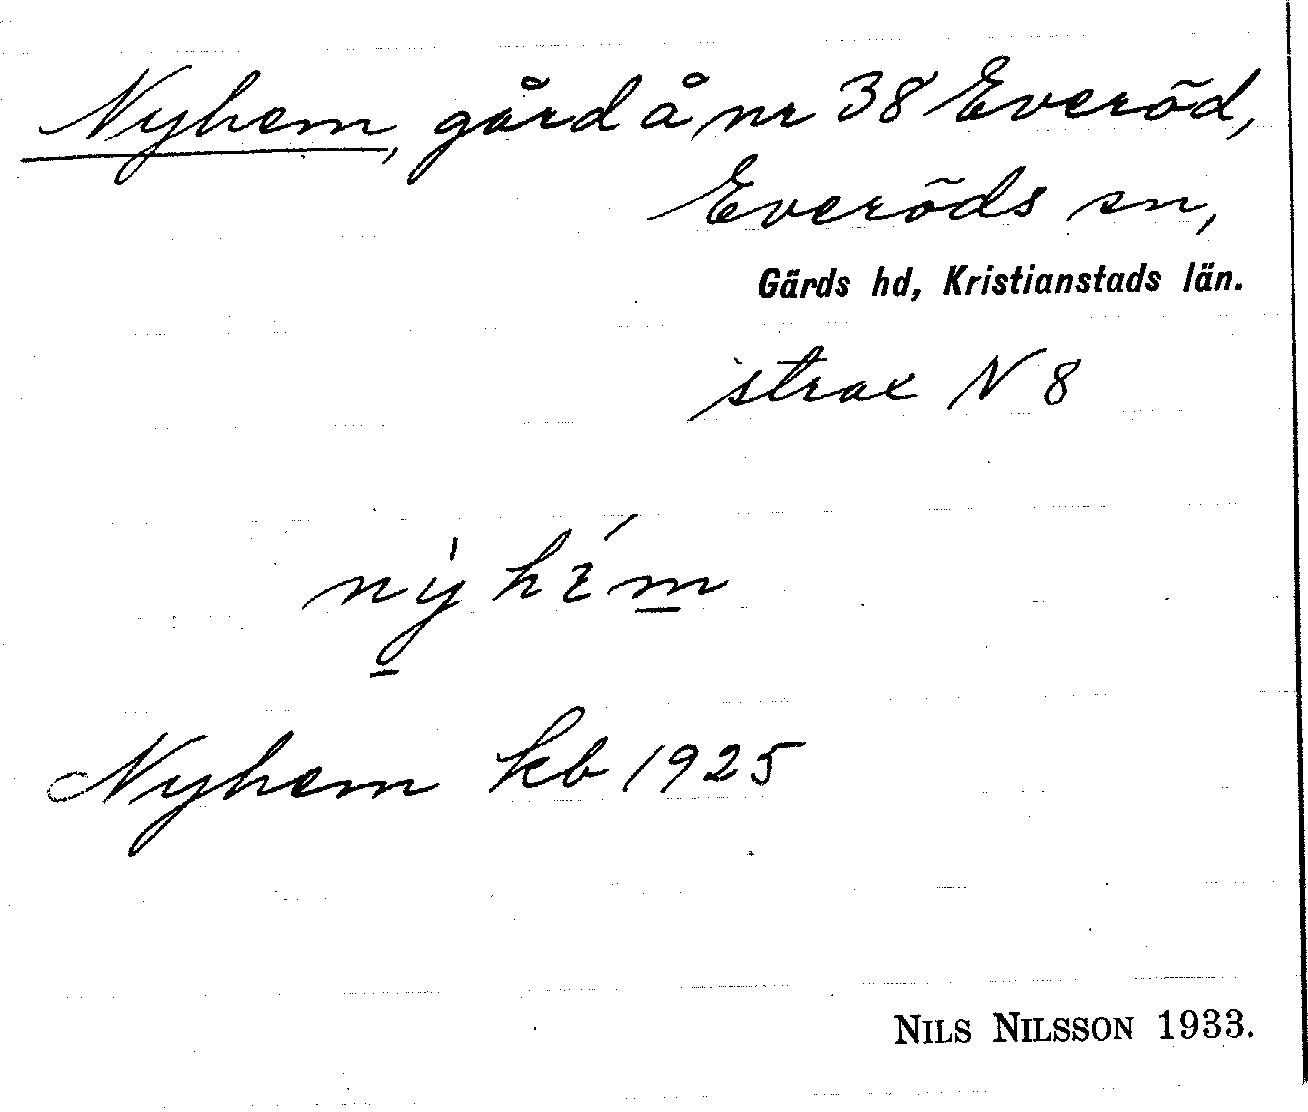 Nyhem, gård å nr 38 Everöd,
Everöds sn,
Gärds hd, Kristianstads län.
strax N 8
Nyhem kb 1925
NILS NILSSON 1933.